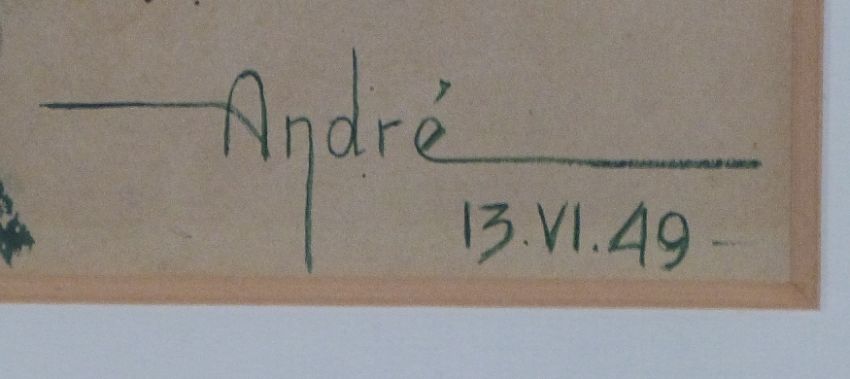 André
13.VI.49